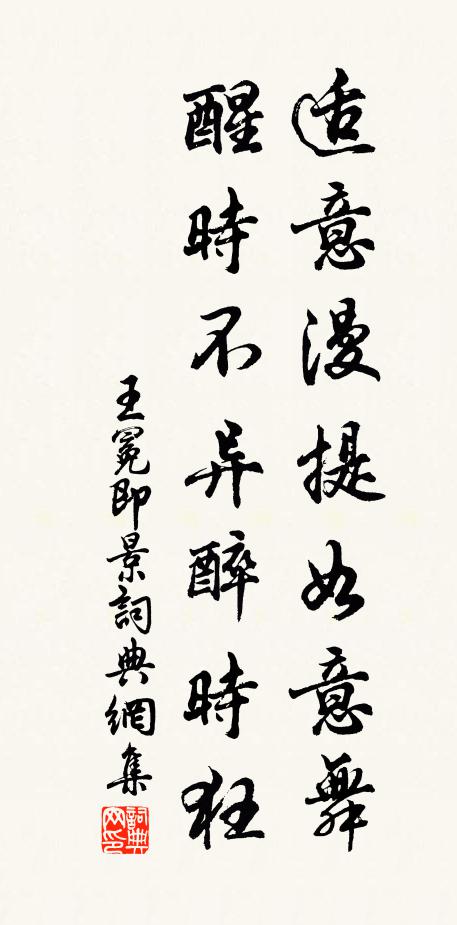 适意漫提如意舞
醒時不异醉時狂
王冕即景詞典網集
詞典网印